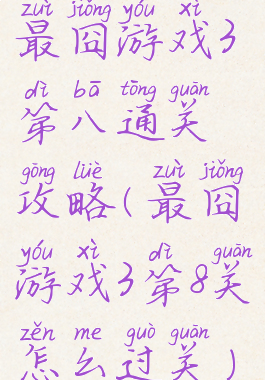 zuì jiǒng yóu xì
最囧游戏3
dì bā tōng guān
第八通关
gōng lüè zuì jiǒng
攻略(最囧
yóu xì dì guān
游戏3第8关
zěn me guò guān
怎么过关)